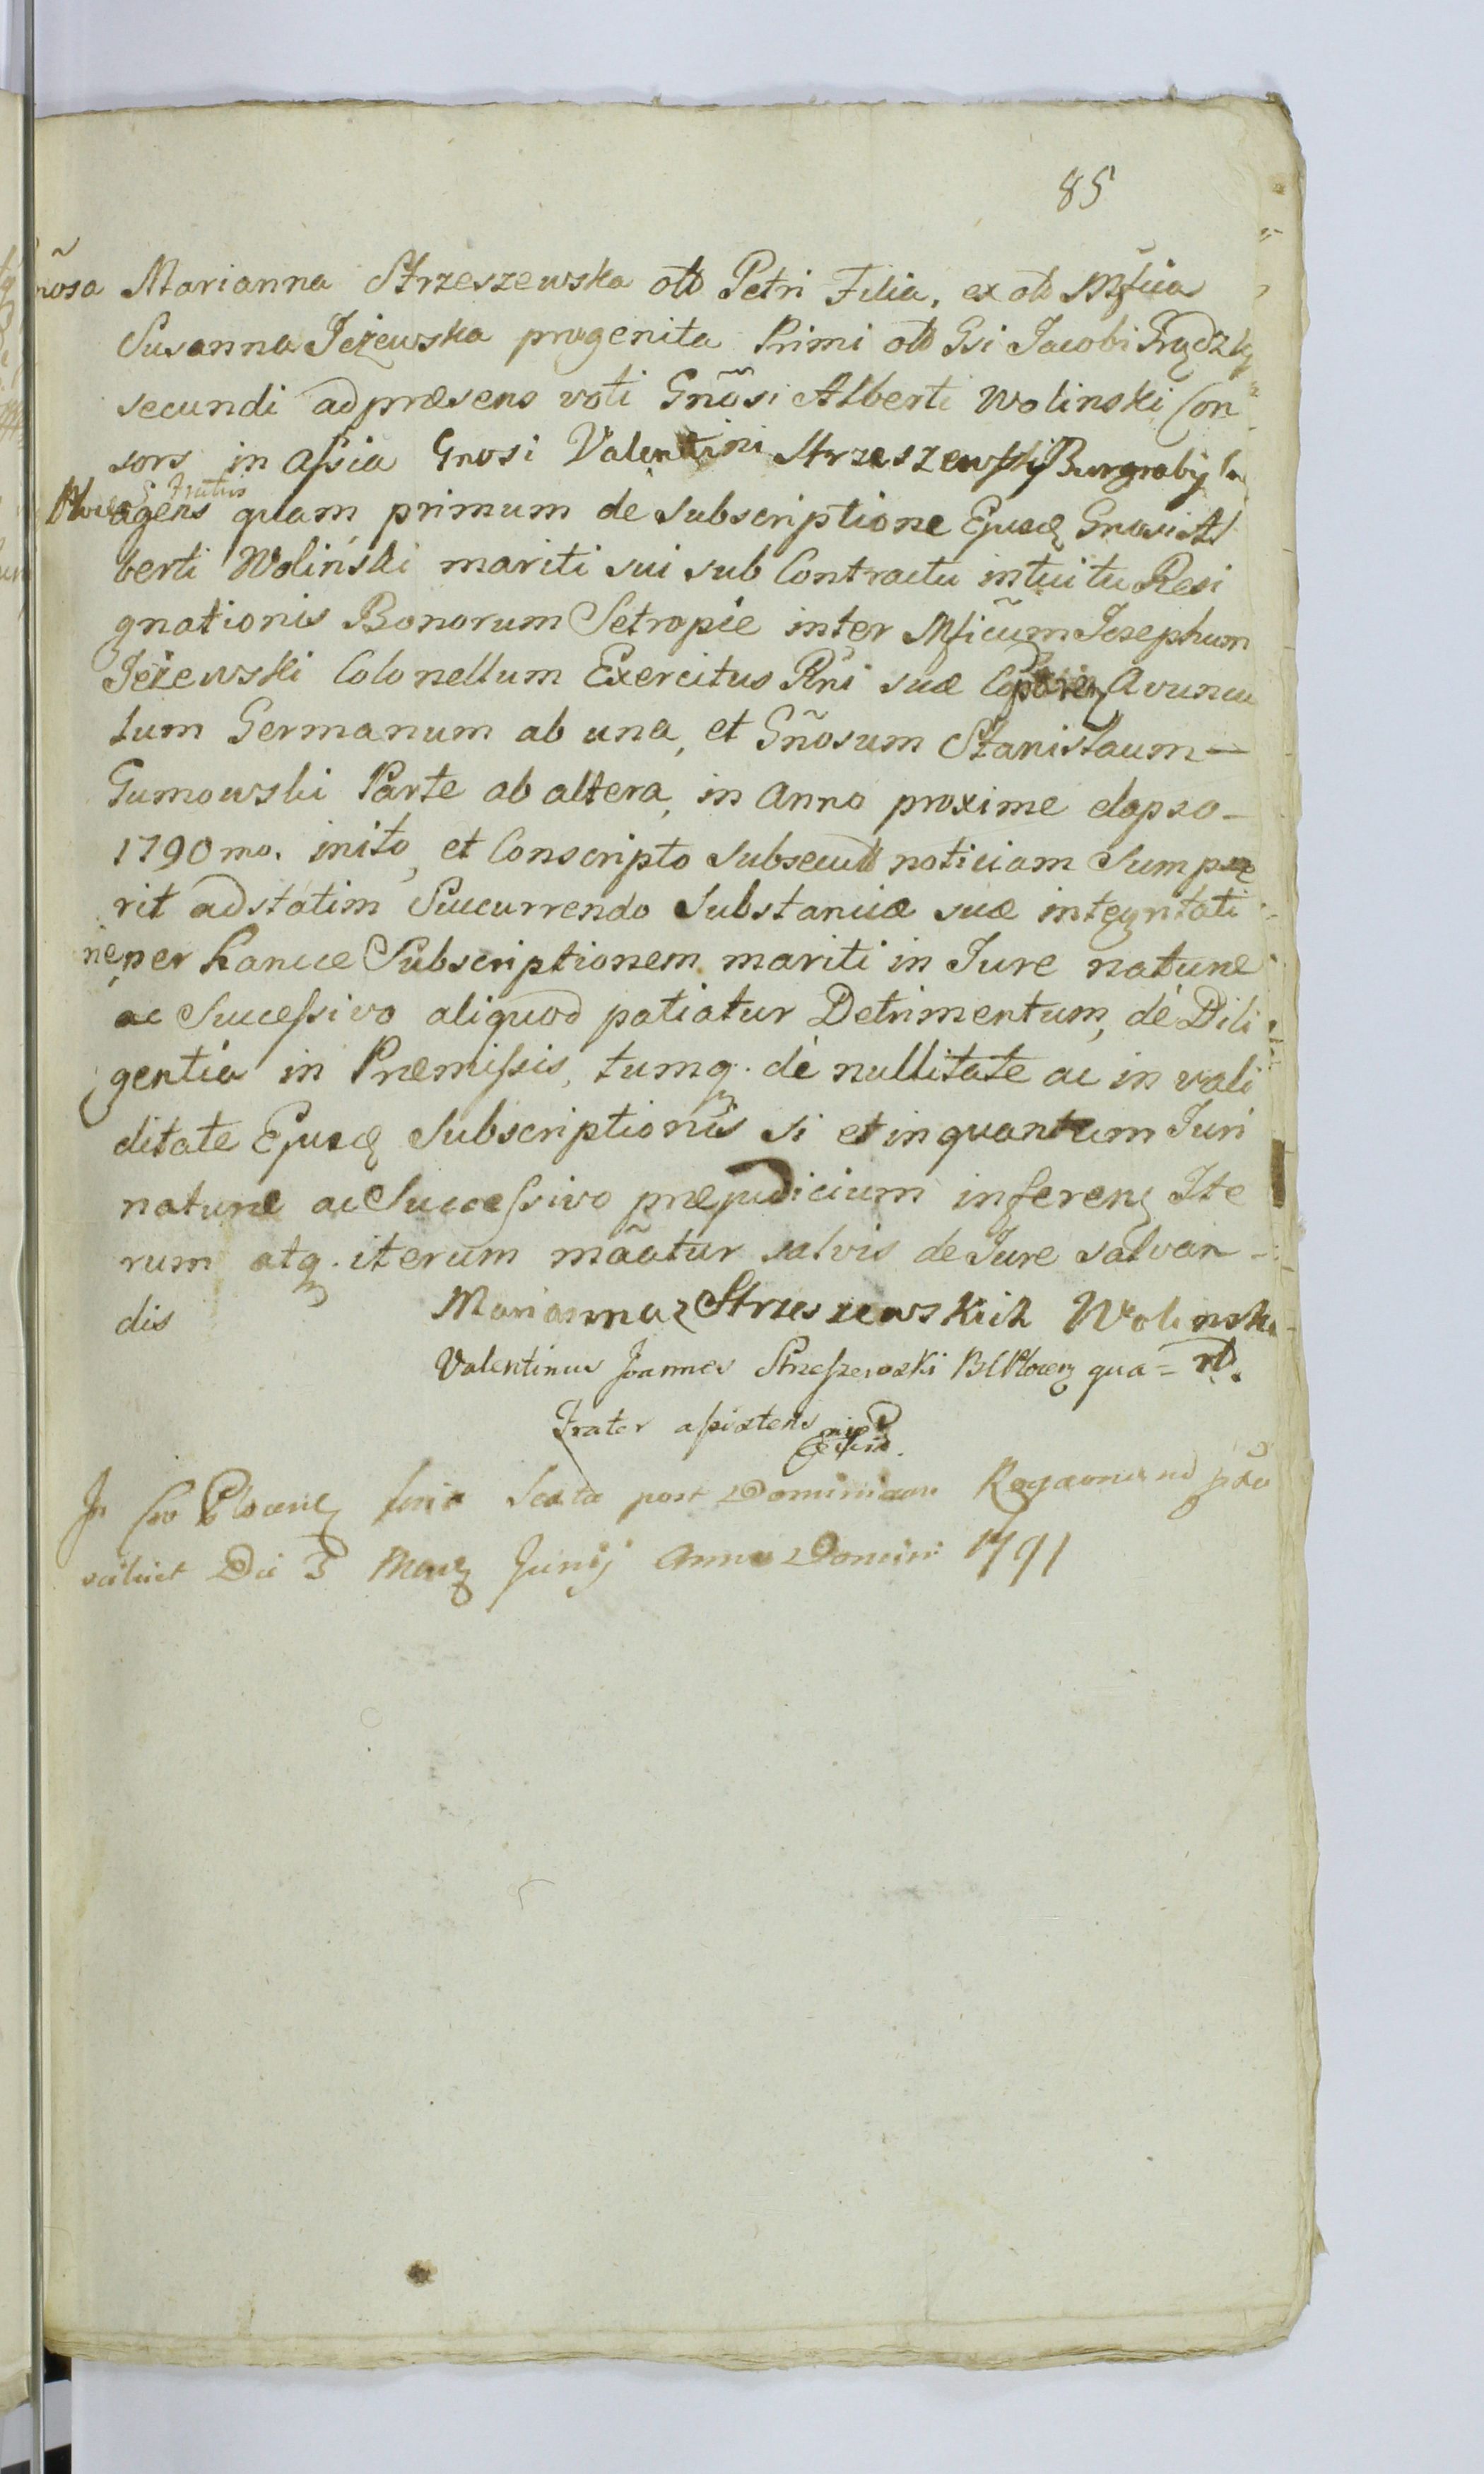 85
Gnõsa Marianna Strzeszewska olb Petri Filia, ex olb Mficia
Susanna Jeżewska progenita Primi olb Gsi Jacobi Grądzky
secundi ad præsens voti Gnõsi Alberti Wolinski Con
sors in aſsia Gnosi Valentini Strzeszewskij Burgrabij C
Fratris
agens quam primum de subscriptione Ejusq Gnosi Al
berti Woliński mariti sui sub Contractu intuitu Resi
gnationis Bonorum Setropie inter Mficum Josephum
Jeżewski Colonellum Exercitus Rni suæ Avuncu
lum Germanum ab una, et Gñosum Stanislaum —
Gumowski Parte ab altera, in Anno proxime elapso —
1790mo. inito, et Conscripto subsecut noticiam sumpse
rit adstatim Succurrendo Substanciæ suæ integritati
ne per hancce Subscriptionem mariti in Jure naturæ
ac Succeſsivo aliquod patiatur Detrimentum, de Dili
gentia in Præmiſsis, tumq. de nullitate ac in vali
ditate Ejusq Subscriptionis si et inquantum Juri
naturæ ac Succeſsivo præjudicium inferenz Ite
rum atq. iterum mãatur salvis de Jure salvan -
dis
Marianna z Strzeszewskich Wolinska
Valentinus Joannes Strzeſzewski B C Plocenz qua =
Frater aſsistens mpp
In Cro Plocenz feria Sexta post Dominicam Rogaonum
scilicet Die 3 Menz Junij Anno Domini 1791